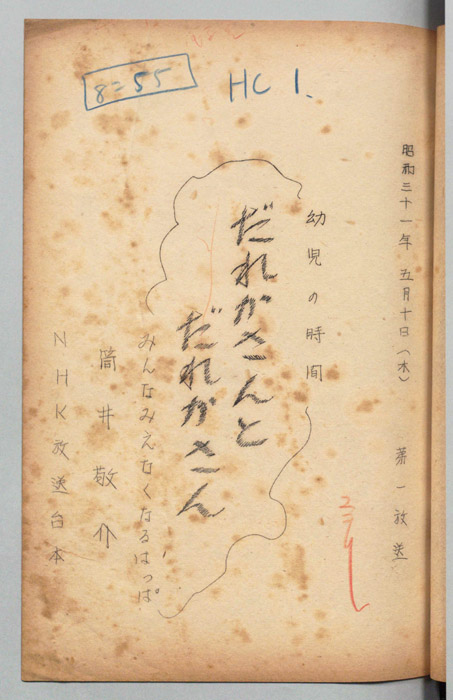 8=55
HC 1.
昭和三十一年 五月十日（水）　第一放送
幼児の時間
だれかさんと
だれかさん
みんなみえなくなるはっぱ
筒井敬介
NHK放送台本